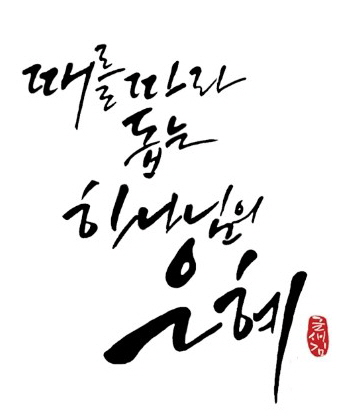 때를 따라
돕는
하나님의
은혜
글새김